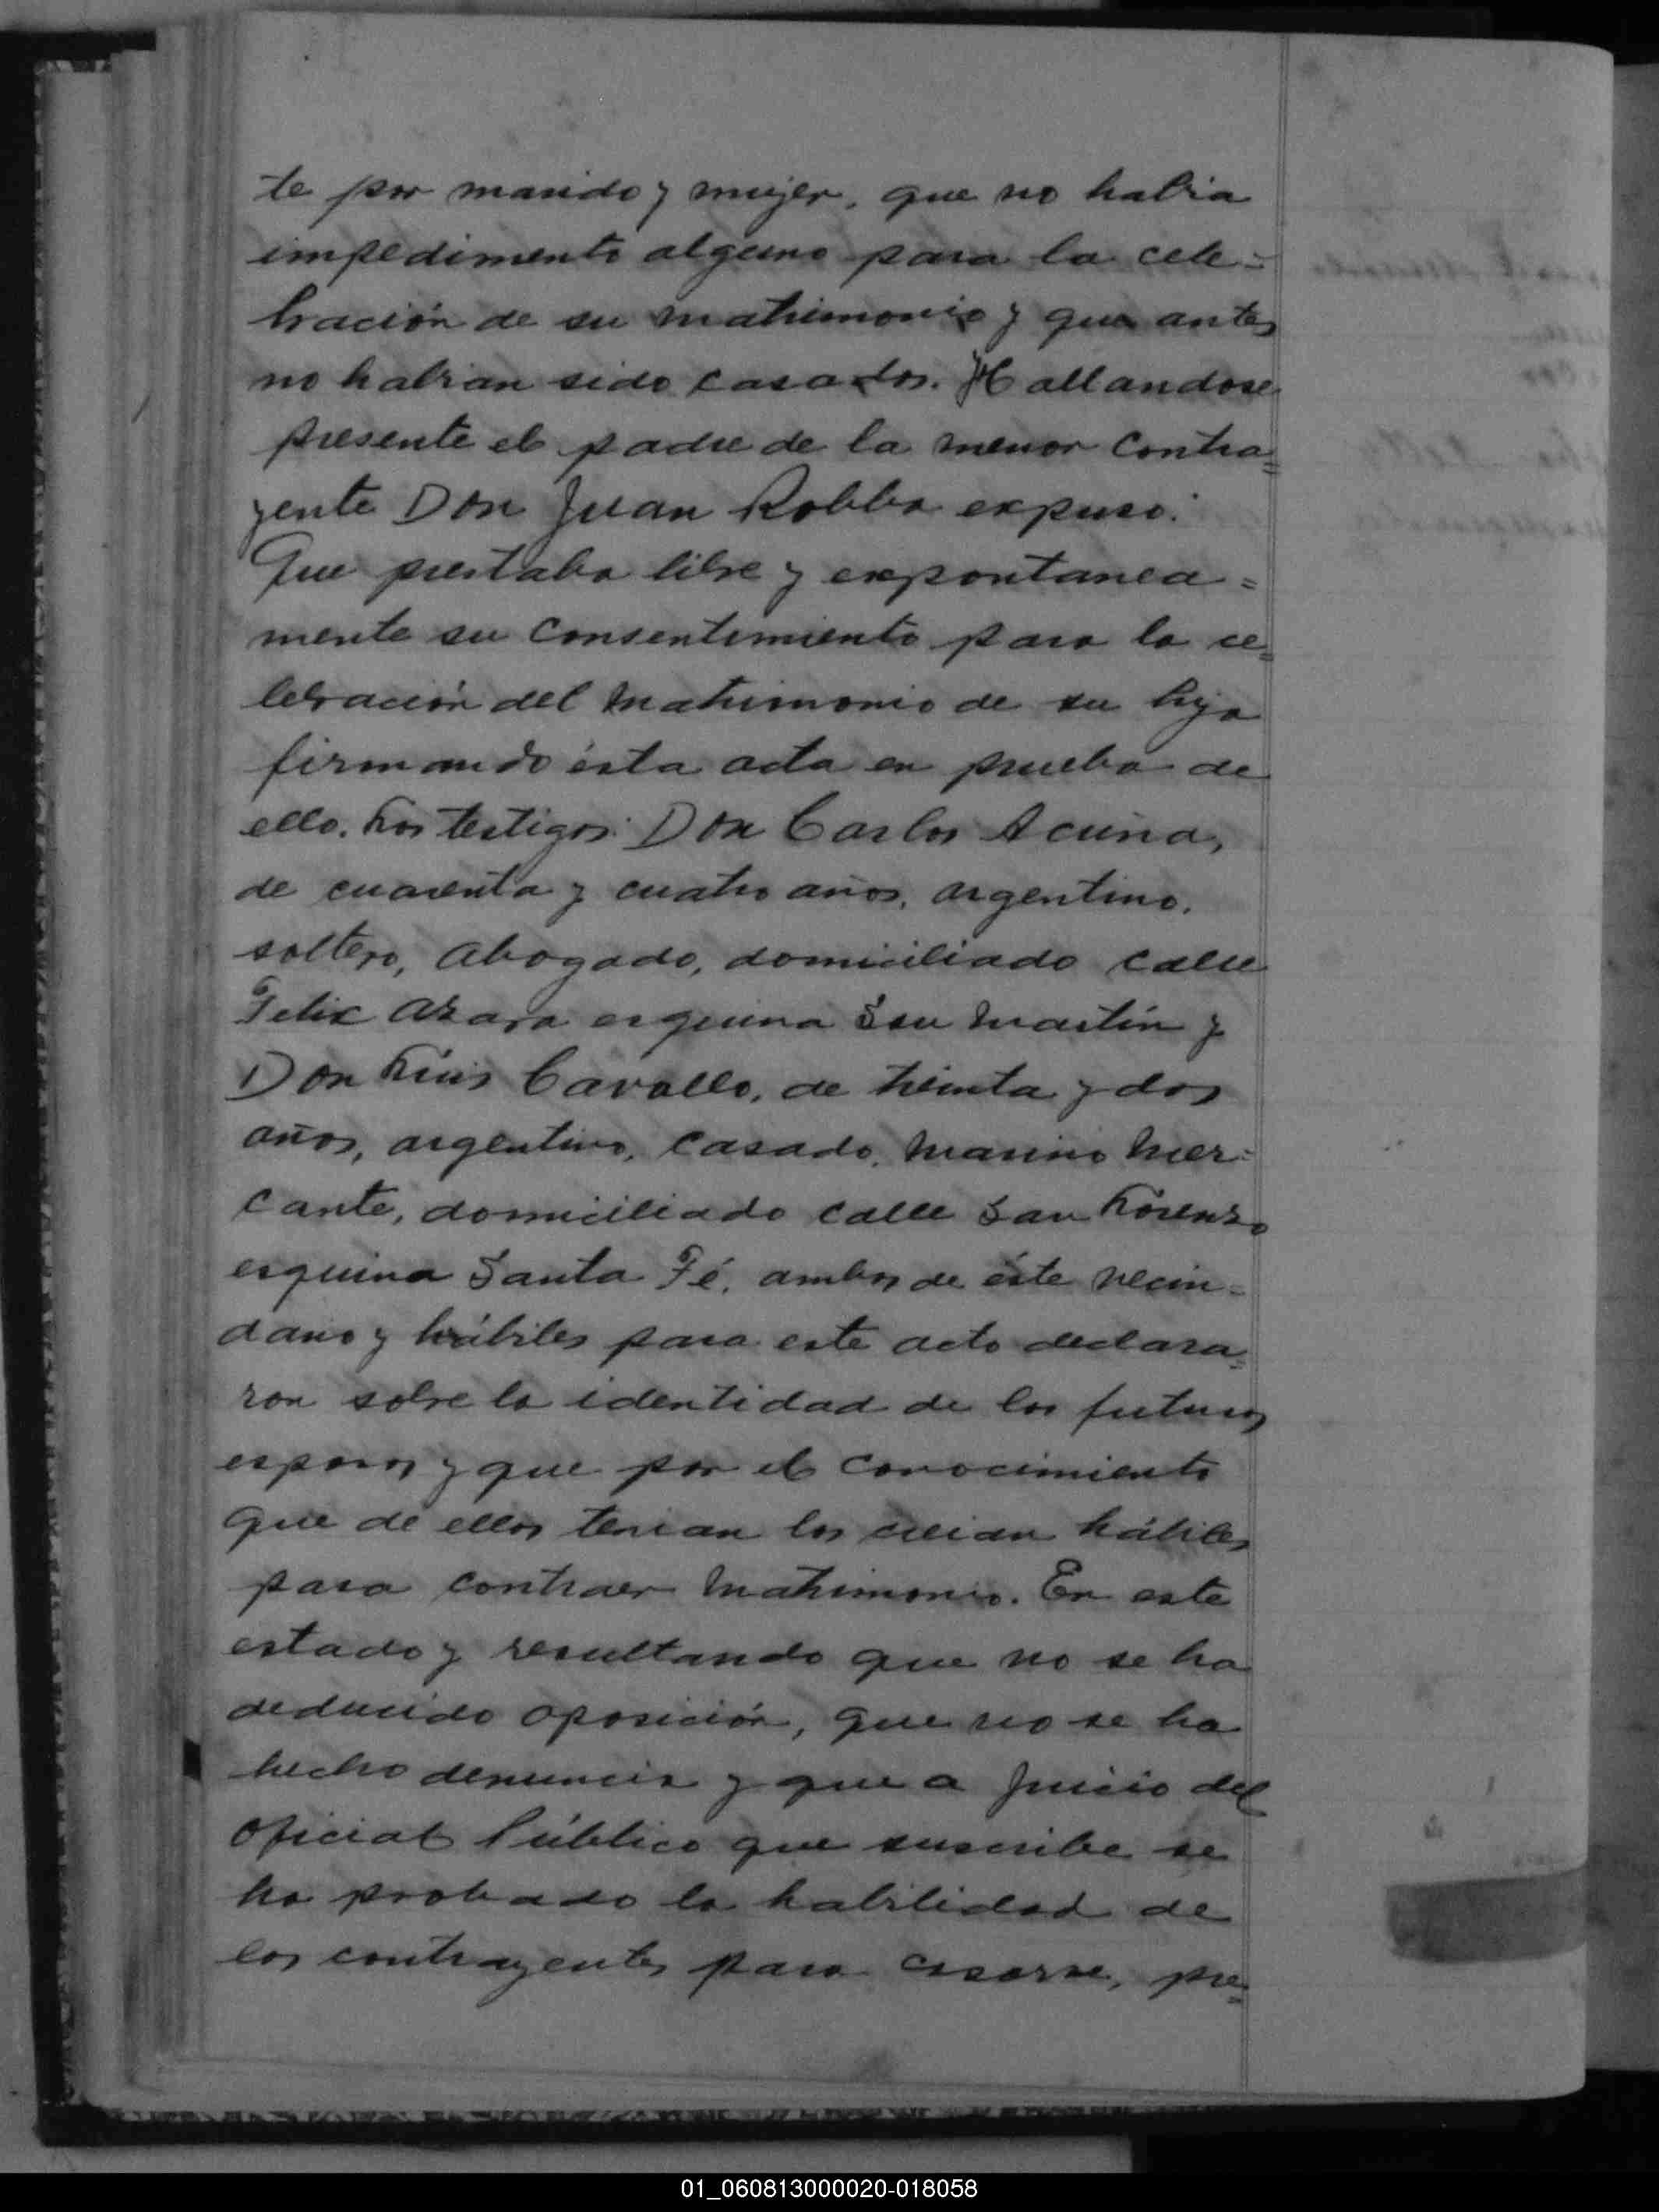 te por marido y mujer, que no habia
impedimento alguno para la cele=
bración de su matrimonio y que antes
no habian sido casados. Hallandose
presente el padre de la menor contra=
yente Don Juan Robba expuso:
Que prestaba libre y expontanea=
mente su consentimiento para la ce=
lebración del matrimonio de su hija
firmando ésta acta en prueba de
ello. Los testigos: Don Carlos Acuña,
de cuarenta y cuatro años, argentino,
soltero, abogado, domiciliado calle
Felix Azara esquina San Martín y
Don Luis Cavallo, de treinta y dos
años, argentino, casado, marino mer=
cante, domiciliado calle San Lorenzo
esquina Santa Fé, ambos de éste vecin=
dario y hábiles para este acto declara=
ron sobre la identidad de los futuros
esposos y que por el conocimiento
que de ellos tenian los creian hábiles
para contraer matrimonio. En este
estado y resultando que no se ha
deducido oposición, que no se ha
hecho denuncia y que a juicio del
oficial Público que suscribe se
ha probado la habilidad de
los contrayentes para casarse, pre=
01_060813000020-018058